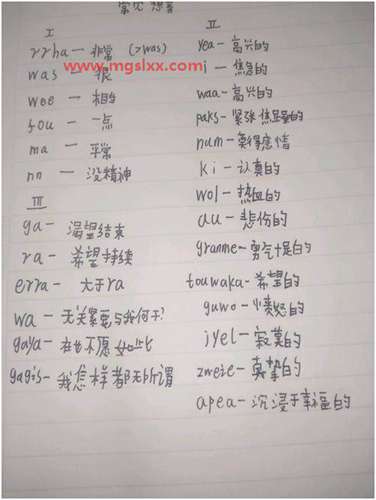 常见
I
rrha — 非常 (>was)
was — 很
www.mgslxx.com
wee — 相当
fou — 一点
ma — 平常
nn — 没精神
III
ga — 渴望结束
ra — 希望持续
erra — 大于ra
wa — 无关紧要与我何干?
gaya — 在也不愿如此
gagis — 我怎样都无所谓
II
yea — 高兴的
i — 焦急的
waa — 高兴的
paks — 紧张焦虑的
num — 莫得感情
ki — 认真的
wol — 热血的
au — 悲伤的
granme — 勇气十足的
touwaka — 希望的
guwo — 愤怒的
jyel — 寂寞的
zweie — 真挚的
apea — 沉浸于幸福的